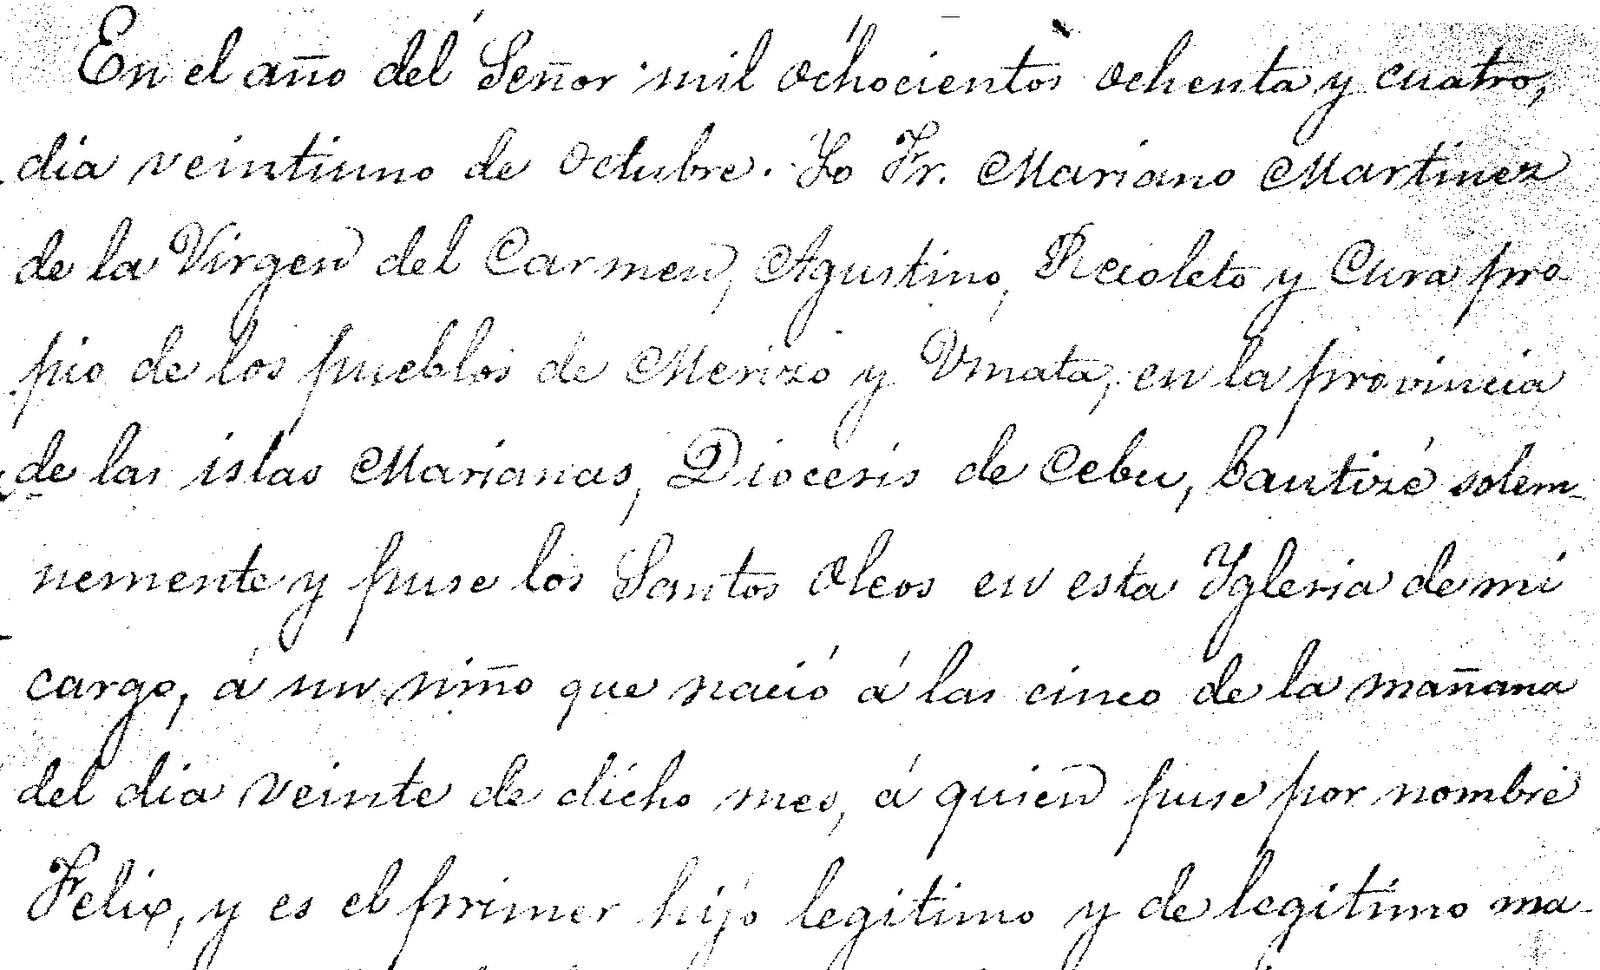 En el año del Señor mil ochocientos ochenta y cuatro,
dia veintiuno de Octubre. Yo Fr. Mariano Martinez
de la Virgen del Carmen, Agustino, Recoleto y Cura pro-
pio de los pueblos de Merizo y Vmata, en la provincia
de las islas Marianas, Diocesis de Cebu, bautizé solem-
nemente y puse los Santos Oleos en esta Yglesia de mi
cargo, á un niño que nació á las cinco de la mañana
del dia veinte de dicho mes, á quien puse por nombre
Felix, y es el primer hijo legitimo y de legitimo ma-